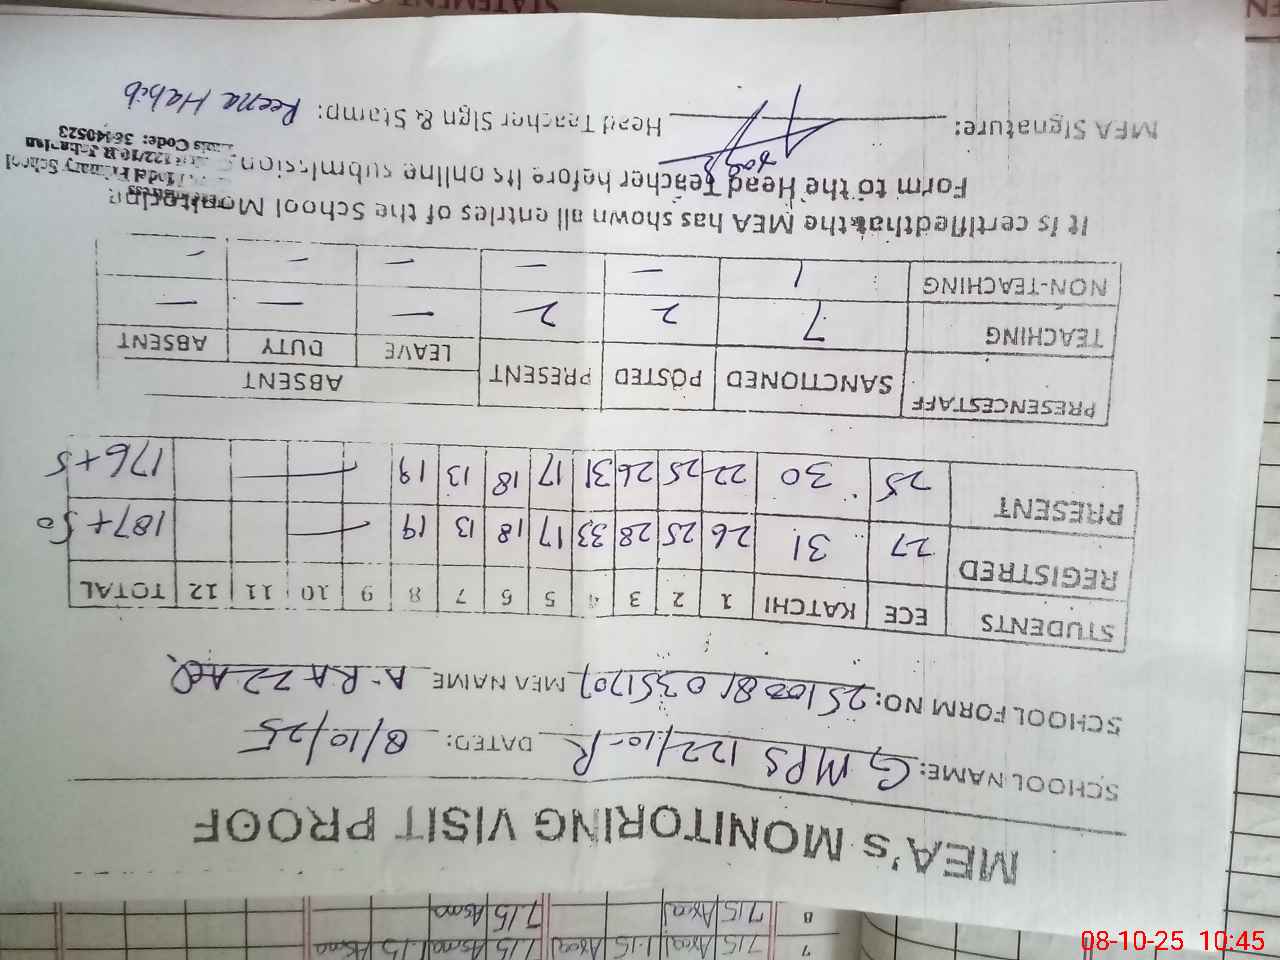 MEA's MONITORING VISIT PROOF
SCHOOL NAME: GMPS 122/10-R DATED: 8/10/25
SCHOOL FORM NO: MEA NAME A. RAZZAQ
STUDENTS ECE KATCHI 1 2 3 4 5 6 7 8 9 10 11 12 TOTAL
REGISTRED 27 31 26 25 28 33 17 18 13 19 — 187+50
PRESENT 25 30 22 25 26 31 17 18 13 19 — 176+5
PRESENCESTAFF SANCTIONED POSTED PRESENT ABSENT
LEAVE DUTY ABSENT
TEACHING 7 2 2 — — —
NON-TEACHING 1 — — — — —
It is certified that the MEA has shown all entries of the School Monitoring
Form to the Head Teacher before its online submission.
MEA Signature: Head Teacher Sign & Stamp: Reena Habib
Primary School
122/10.R
Code: 36340523
7 7.15 Asma
8 7.15 7.15 Asma
STATEMENT OF
08-10-25 10:45